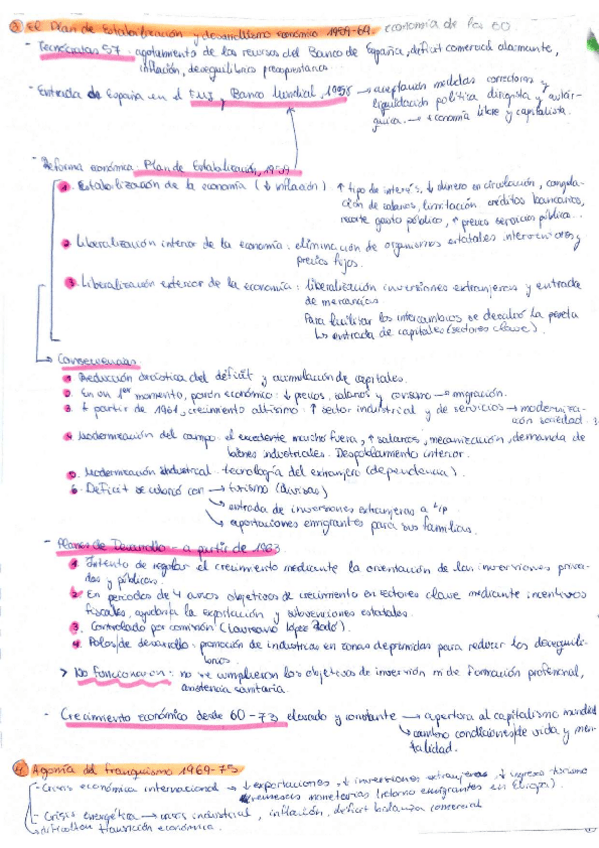 ③ El Plan de Estabilización y desarrollismo económico 1959-69. economía de los 60
- Tecnócratas 57: agotamiento de los recursos del Banco de España, déficit comercial alarmante,
inflación, desequilibrio presupuestario...
- Entrada de España en el FMI y Banco Mundial, 1958 → aceptación medidas correctoras y
liquidación política dirigista y autár-
quica. → economía libre y capitalista.
- Reforma económica: Plan de Estabilización, 1959
1. Estabilización de la economía (↓ inflación). ↑ tipo de interés, ↓ dinero en circulación, congela-
ción de salarios, limitación créditos bancarios,
recorte gasto público, ↑ precio servicios públicos...
2. Liberalización interior de la economía: eliminación de organismos estatales interventores y
precios fijos.
3. Liberalización exterior de la economía: liberalización inversiones extranjeras y entrada
de mercancías
Para facilitar los intercambios se devaluó la peseta
↳ entrada de capitales (sectores clave).
→ Consecuencias:
1. Reducción drástica del déficit y acumulación de capitales.
2. En un 1er momento, parón económico: ↓ precios, salarios y consumo → migración.
3. A partir de 1961, crecimiento altísimo: ↑ sector industrial y de servicios → moderniza-
ción sociedad.
4. Modernización del campo: el excedente marcha fuera, ↑ salarios, mecanización, demanda de
bienes industriales. Despoblamiento interior.
5. Modernización industrial: tecnología del extranjero (dependencia).
6. Déficit se subsanó con → turismo (divisas)
↳ entrada de inversiones extranjeras a l/p
↳ aportaciones emigrantes para sus familias.
- Planes de Desarrollo - a partir de 1963
1. Intento de regular el crecimiento mediante la orientación de las inversiones priva-
das y públicas.
2. En periodos de 4 años objetivos de crecimiento en sectores clave mediante incentivos
fiscales, ayuda a la exportación y subvenciones estatales.
3. Controlado por comisión (Laureano López Rodó).
4. Polos de desarrollo: promoción de industrias en zonas deprimidas para reducir los desequili-
brios.
> No funcionaron: no se cumplieron los objetivos de inversión ni de formación profesional,
asistencia sanitaria.
- Crecimiento económico desde 60-73 elevado y constante → apertura al capitalismo mundial
↳ cambio condiciones de vida y men-
talidad.
④ Agonía del franquismo 1969-75
- Crisis económica internacional → ↓ exportaciones, ↓ inversiones extranjeras, ↓ ingreso turismo
remesas monetarias (retorno emigrantes en Europa).
- Crisis energética → crisis industrial, inflación, déficit balanza comercial
↳ dificultan transición económica.